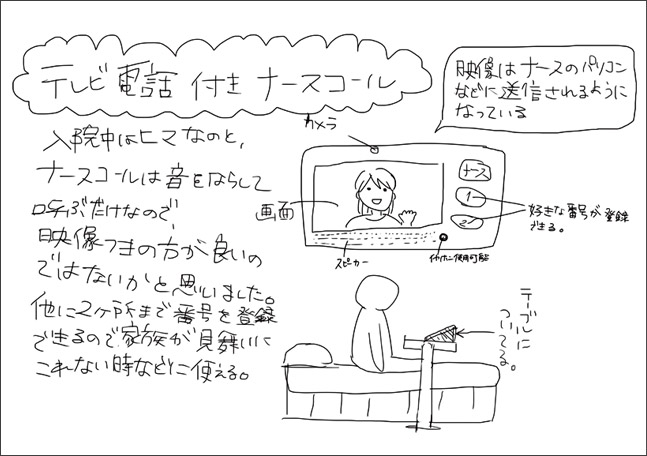 テレビ電話 付き ナースコール
映像はナースのパソコン
などに送信されるように
なっている
入院中はヒマなのと、
ナースコールは音をならして
呼ぶだけなので、
映像つきの方が良いの
ではないかと思いました。
他に2ヶ所まで番号を登録
できるので家族が見舞いに
これない時などに使える。
カメラ
画面
ナース
1
2
好きな番号が登録
できる。
スピーカー
イヤホン使用可能
テーブルに
ついてる。